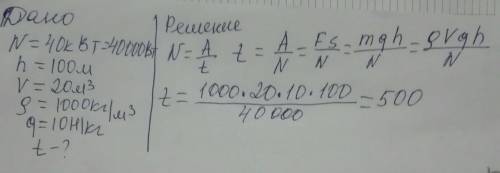 Дано
N = 40кВт=40000Вт
h = 100м
V = 20м³
ρ = 1000кг/м³
g = 10Н/кг
t - ?
Решение
N = A/t t = A/N = Fs/N = mgh/N = ρVgh/N
t = 1000·20·10·100/40000 = 500